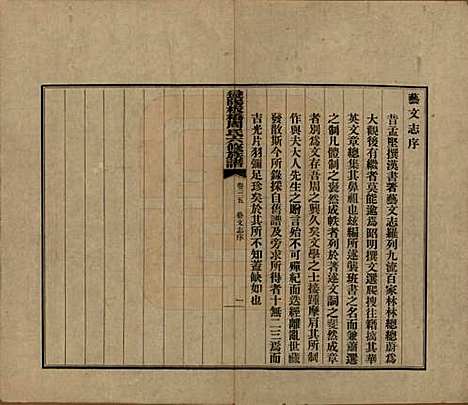 藝文志序
昔孟堅撰漢書著藝文志羅列九流百家林林總總蔚爲
大觀後有繼者莫能逾爲昭明撰文選爬搜往籍摘其華
英文章總集其鼻祖也玆編所述襲班書之名而兼蕭選
之制凡體制之褎然成帙者列於著述文詞之斐然成章
者別爲文存吾周之興久矣文學之士接踵摩肩其所制
作與夫大人先生之贈言殆不可殫紀而迭經離亂世藏
發散斯今所錄採自舊譜及旁求所得者十無二三焉而
吉光片羽彌足珍矣於其所不知蓋缺如也
橋周氏六修族譜
卷三五
藝文志序
一